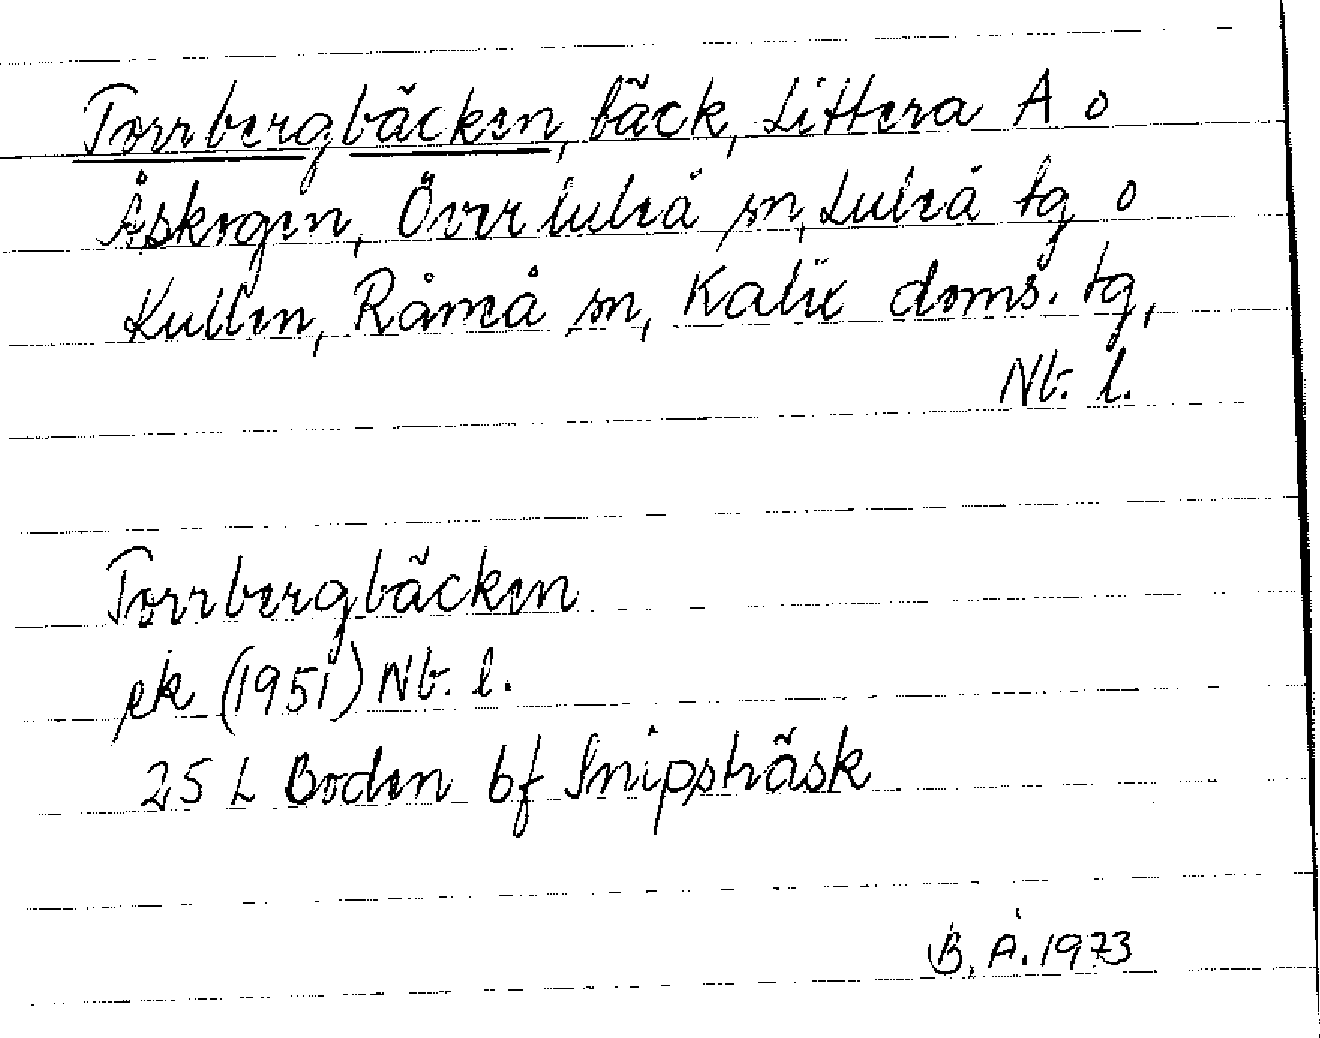 Torrbergbäcken, bäck, Littera A o
Åskogen, Överluleå sn, Luleå tg o
Kullen, Råneå sn, Kalix doms. tg,
Nb. l.
Torrbergbäcken
ek (1951) Nb. l.
25 L Boden bf Snipsträsk
B. Å. 1973